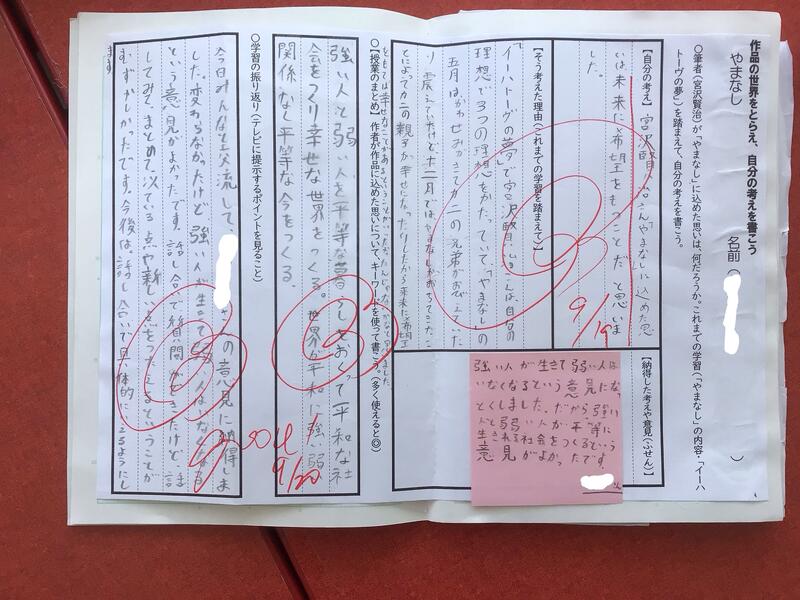 作品の世界をとらえ、自分の考えを書こう
やまなし
名前（　　　　）
○筆者（宮沢賢治）が「やまなし」に込めた思いは、何だろうか。これまでの学習（「やまなし」の内容・「イーハ
トーヴの夢」）を踏まえて、自分の考えを書こう。
【自分の考え】宮沢賢治さんがやまなしに込めた思
いは未来に希望をもつことだと思いま
した。
9/19
【納得した考えや意見（ふせん）】
強い人が生きて弱い人は
いなくなるという意見になっ
とくしました。だから強い
人と弱い人が平等に
生きれる社会をつくるという
意見がよかったです
【そう考えた理由（これまでの学習を踏まえて）】
「イーハトーヴの夢」で宮沢賢治さんは、自分の
理想で3つの理想をかたっていて、「やまなし」の
五月はかわせみがきてカニの兄弟がおびえていた
り震えていたけど十二月ではやまなしがおちってきたこ
とによってカニの親子が幸せになったりしたから未来に希望
をもてば幸せなことがある
○【授業のまとめ】作者が作品に込めた思いについて、キーワードを使って書こう。（多く使えると◎）
強い人と弱い人を平等な暮らしをおくって平和な社
会をつくり幸せな世界をつくる。世界が平和に強い弱い
関係なく平等な今をつくる。
9/20
○学習の振り返り（テレビに提示するポイントを見ること）
今日みんなと交流して、
さんの意見に納得しま
した。変わらなかったけど強い人が生きて弱い人はいなくなる
という意見がよかったです。話し合いで質問ができたけど、話
してみて、まとめて似ている点や新しい
をつたえるということが
むずかしかったです。今後は、話し合いで具体的に
るようにし
ます
good